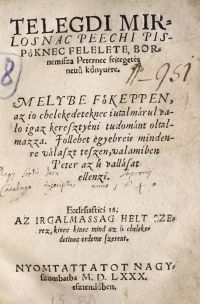 TELEGDI MIK-
LOSNAC PEECHI PIS-
PöKNEC FELELETE, BOR-
nemisza Peternec feitegetés
neuü könyuére,
8
1-951
MELYBE FöKEPPEN,
az io chelekedeteknec iutalmárul va-
lo igaz keresztyéni tudomańt oltal-
mazza. Follehet egyebreis minden-
re választ teszen, valamiben
Peter az ü vallásat
ellenzi.
Ecclesiastici 16.
AZ IRGALMASSAG HELT SZE-
rez, kinec kinec mind az ü cheleke-
detinec erdeme szerent.
NYOMTATTATOT NAGY-
szombatba M. D. LXXX.
esztendőben.